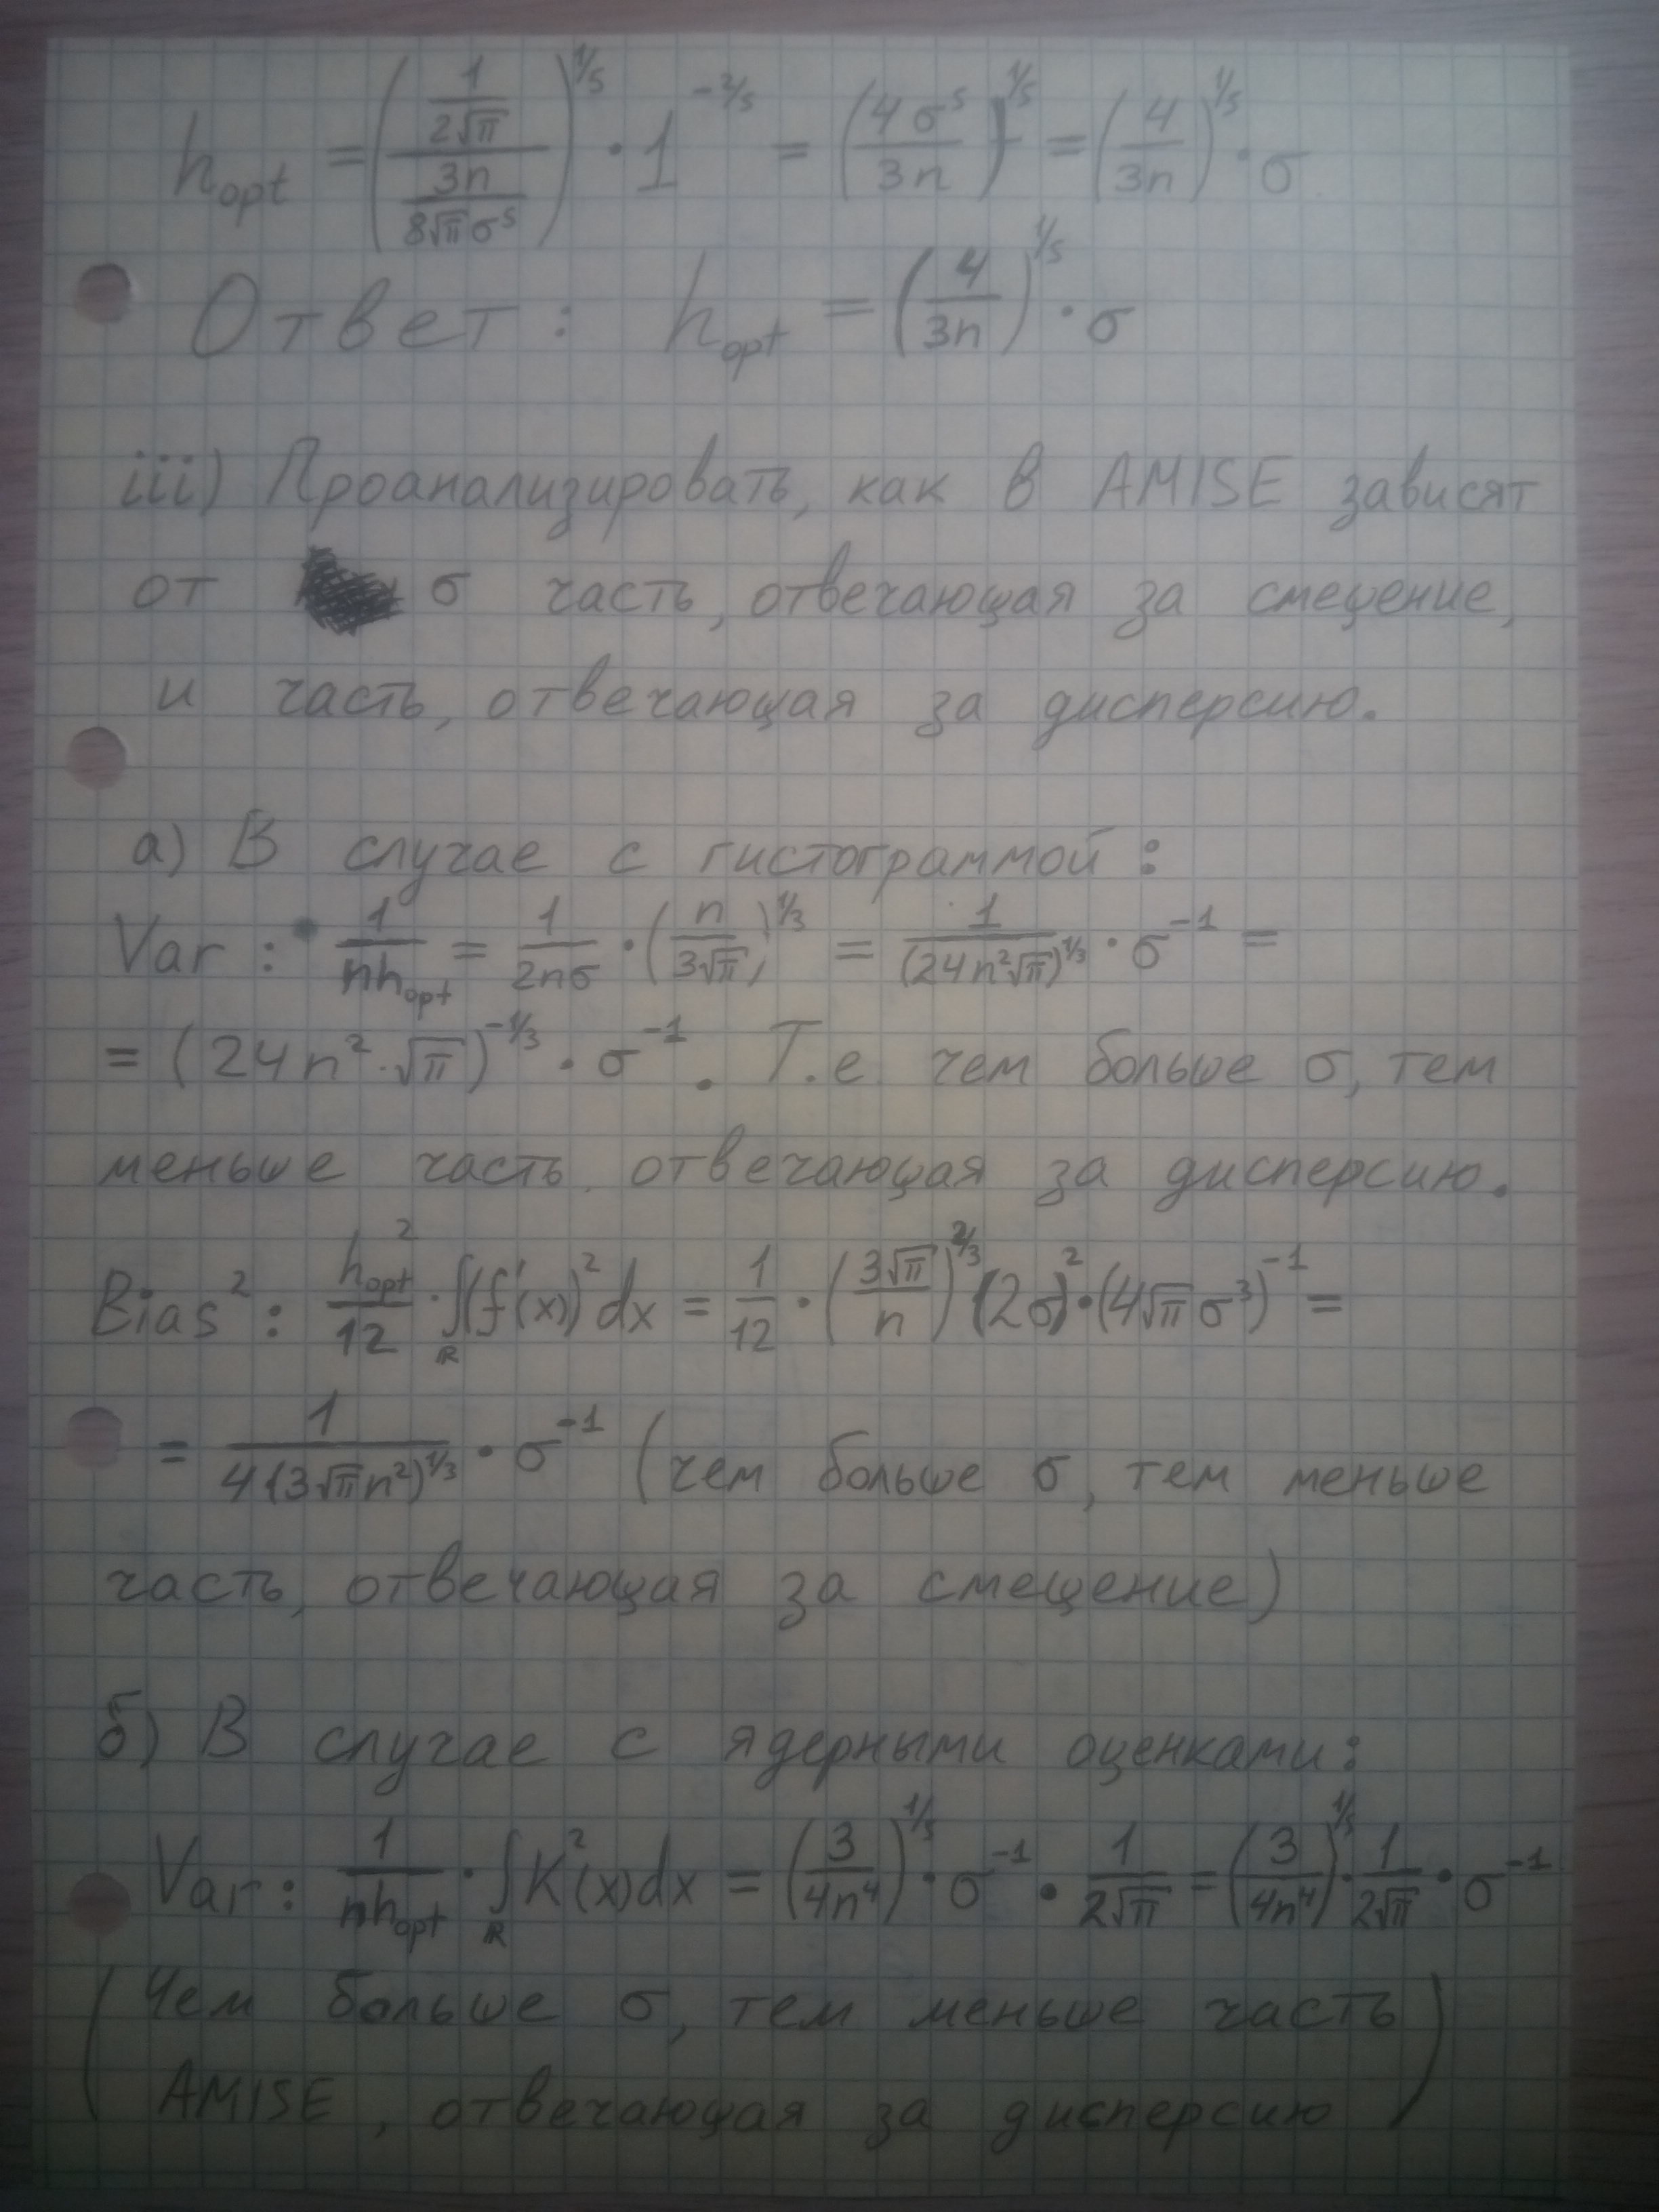 h_opt = ( (1/(2√π)) / (3n/(8√π σ⁵)) )^(1/5) · 1^(-2/5) = (4σ⁵/(3n))^(1/5) = (4/(3n))^(1/5) · σ
Ответ : h_opt = (4/(3n))^(1/5) · σ
iii) Проанализировать, как в AMISE зависят
от σ часть, отвечающая за смещение,
и часть, отвечающая за дисперсию.
а) В случае с гистограммой :
Var : 1/(nh_opt) = 1/(2nσ) · (n/(3√π))^(1/3) = 1/(24n²√π)^(1/3) · σ^(-1) =
= (24n² · √π)^(-1/3) · σ^(-1) . Т.е чем больше σ, тем
меньше часть, отвечающая за дисперсию.
Bias² : h_opt²/12 · ∫_ℝ (f'(x))² dx = 1/12 · (3√π/n)^(2/3) (2σ)² · (4√π σ³)^(-1) =
= 1/(4(3√π n²)^(1/3)) · σ^(-1) (чем больше σ, тем меньше
часть, отвечающая за смещение)
б) В случае с ядерными оценками :
Var : 1/(nh_opt) · ∫_ℝ K²(x)dx = (3/(4n⁴))^(1/5) · σ^(-1) · 1/(2√π) = (3/(4n⁴))^(1/5) · 1/(2√π) · σ^(-1)
(Чем больше σ, тем меньше часть
AMISE, отвечающая за дисперсию)